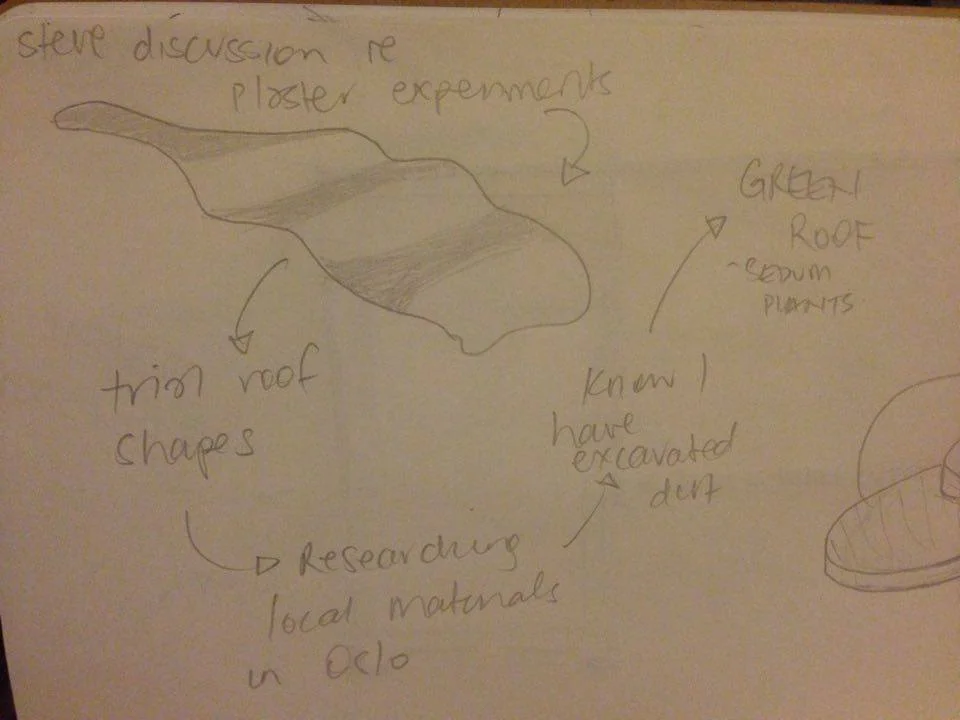 steve discussion re
plaster experiments
trial roof
shapes
Researching
local materials
in Oslo
Know I
have
excavated
dirt
GREEN
ROOF
- SEDUM
PLANTS